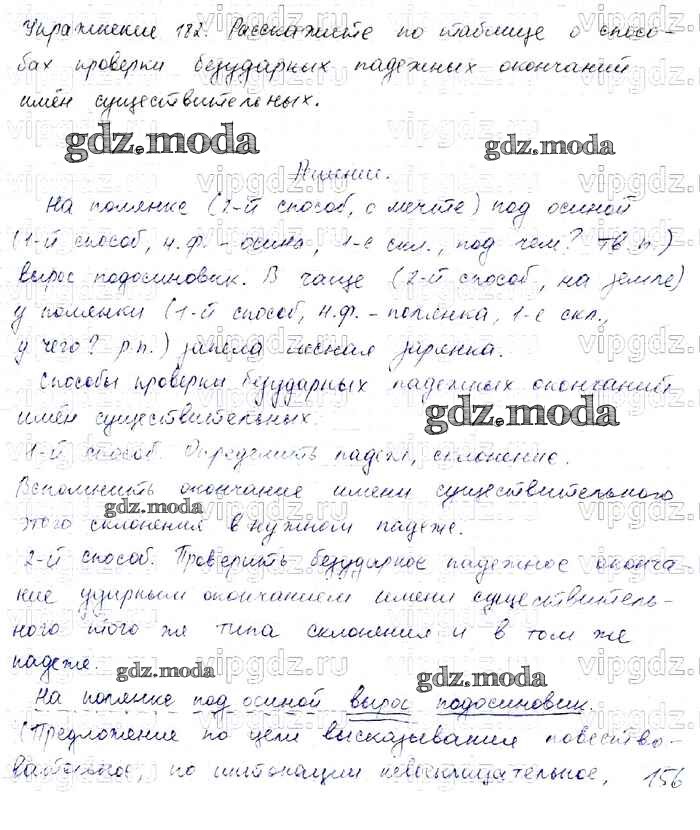 Упражнение 182. Расскажите по таблице о спосо-
бах проверки безударных падежных окончаний
имён существительных.
gdz.moda gdz.moda
Решение.
На полянке (2-й способ, о мечте) под осиной
(1-й способ, н.ф. - осина, 1-е скл., под чем? Тв.п.)
вырос подосиновик. В чаще (2-й способ, на земле)
у полянки (1-й способ, н.ф. - полянка, 1-е скл.,
у чего? р.п.) запела лесная зарянка.
Способы проверки безударных падежных окончаний
имён существительных.
gdz.moda
1-й способ. Определить падеж, склонение.
Вспомнить окончание имени существительного
gdz.moda
этого склонения в нужном падеже.
2-й способ. Проверить безударное падежное оконча-
ние ударным окончанием имени существитель-
ного того же типа склонения и в том же
падеже.
gdz.moda gdz.moda
На полянке под осиной вырос подосиновик.
(Предложение по цели высказывания повество-
вательное, по интонации невосклицательное, 156
vipgdz.ru